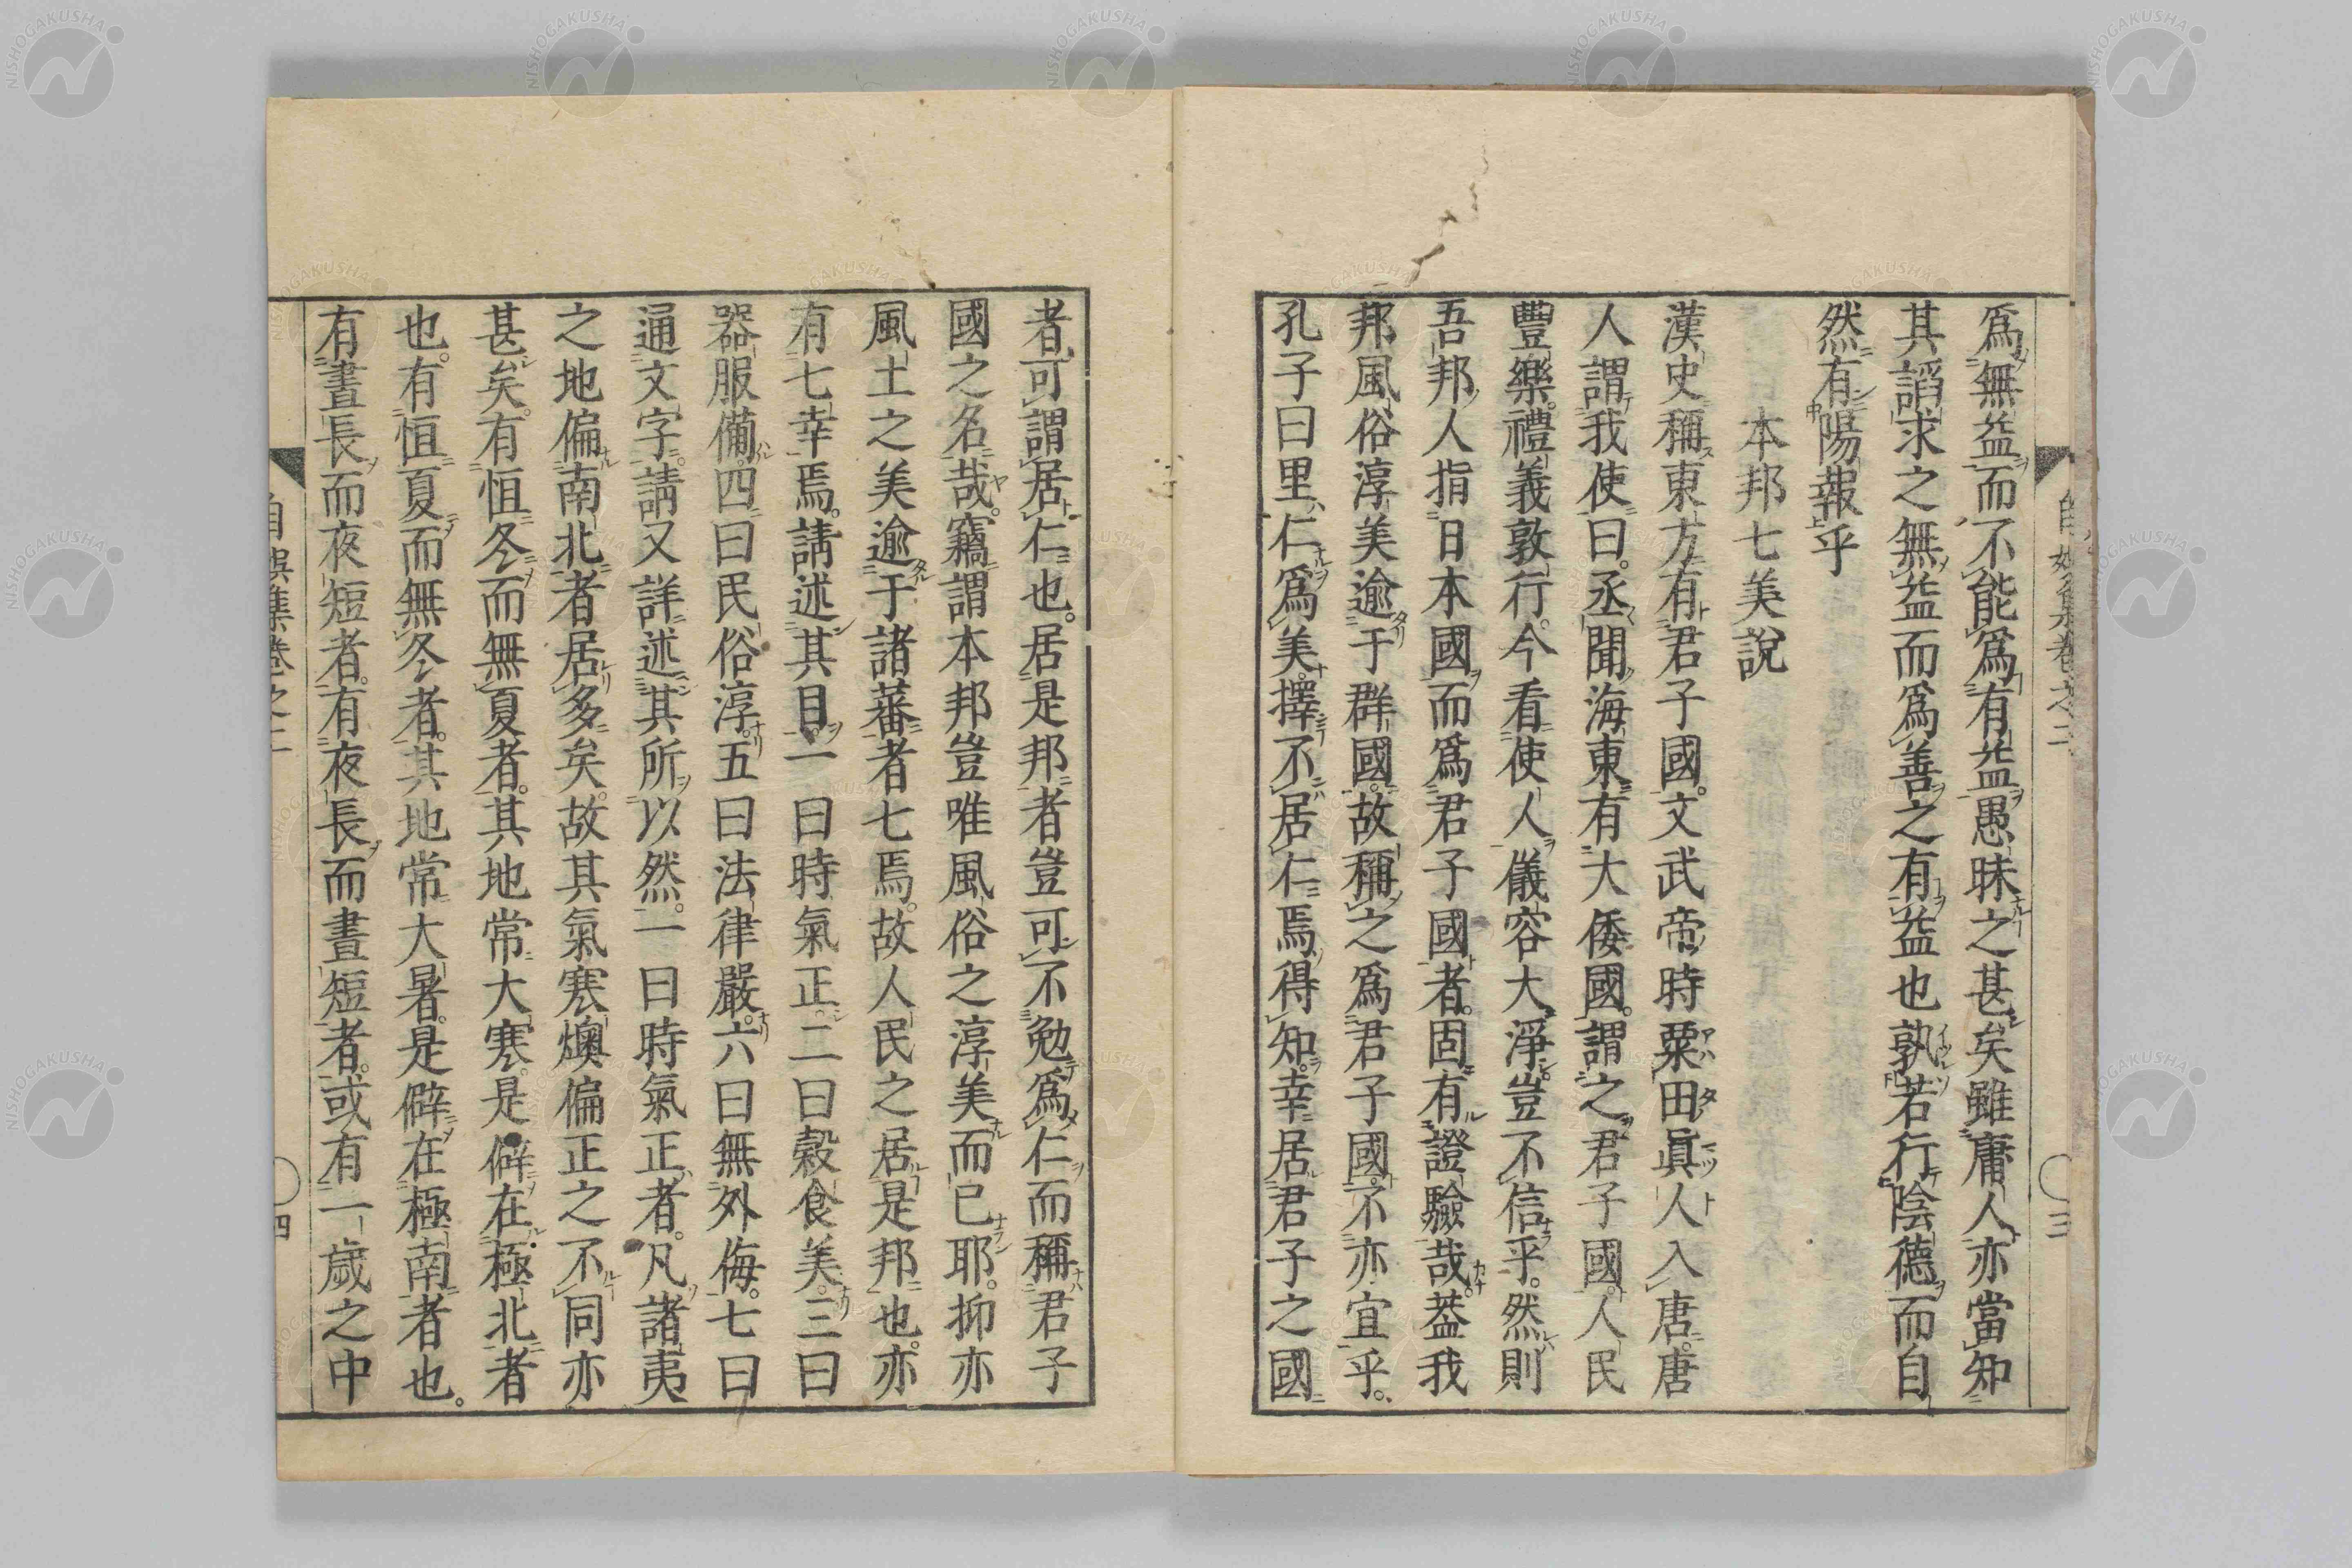 爲無益而不能爲有益愚昧之甚矣雖庸人亦當知
其謟求之無益而爲善之有益也孰若行陰德而自
然有陽報乎
本邦七美說
漢史稱東方有君子國。文武帝時粟田眞人入唐。唐
人謂我使曰。丞聞海東有大倭國。謂之君子國。人民
豐樂。禮義敦行。今看使人儀容大淨。豈不信乎。然則
吾邦人指日本國而爲君子國者。固有證驗哉。葢我
邦風俗淳美逾于群國。故稱之爲君子國。不亦宜乎。
孔子曰里仁爲美。擇不居仁焉得知。幸居君子之國
者。可謂居仁也。居是邦者豈可不勉爲仁而稱君子
國之名哉。竊謂本邦豈唯風俗之淳美而已耶。抑亦
風土之美逾于諸蕃者七焉。故人民之居是邦也。亦
有七幸焉。請述其目。一曰時氣正。二曰穀食美。三曰
器服備。四曰民俗淳。五曰法律嚴。六曰無外侮。七曰
通文字。請又詳述其所以然。一曰時氣正者。凡諸夷
之地偏南北者居多矣。故其氣寒燠偏正之不同亦
甚矣。有恒冬而無夏者。其地常大寒。是僻在極北者
也。有恒夏而無冬者。其地常大暑。是僻在極南者也。
有晝長而夜短者。有夜長而晝短者。或有一歲之中
自娛集卷之二
三
自娛集卷之二
四
NISHOGAKUSHA